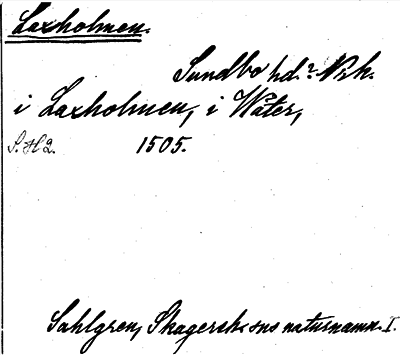 Laxholmen.
Sundbo hd? Nrk.
i Laxholmen, i Wäter,
S. H 2. 1505.
Sahlgren, Skagersh. sns naturnamn. I.